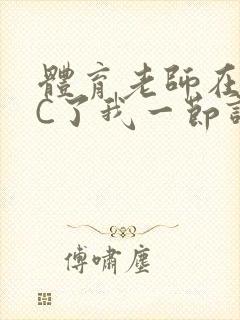 體育老師在
C了我一節
傅嘯塵